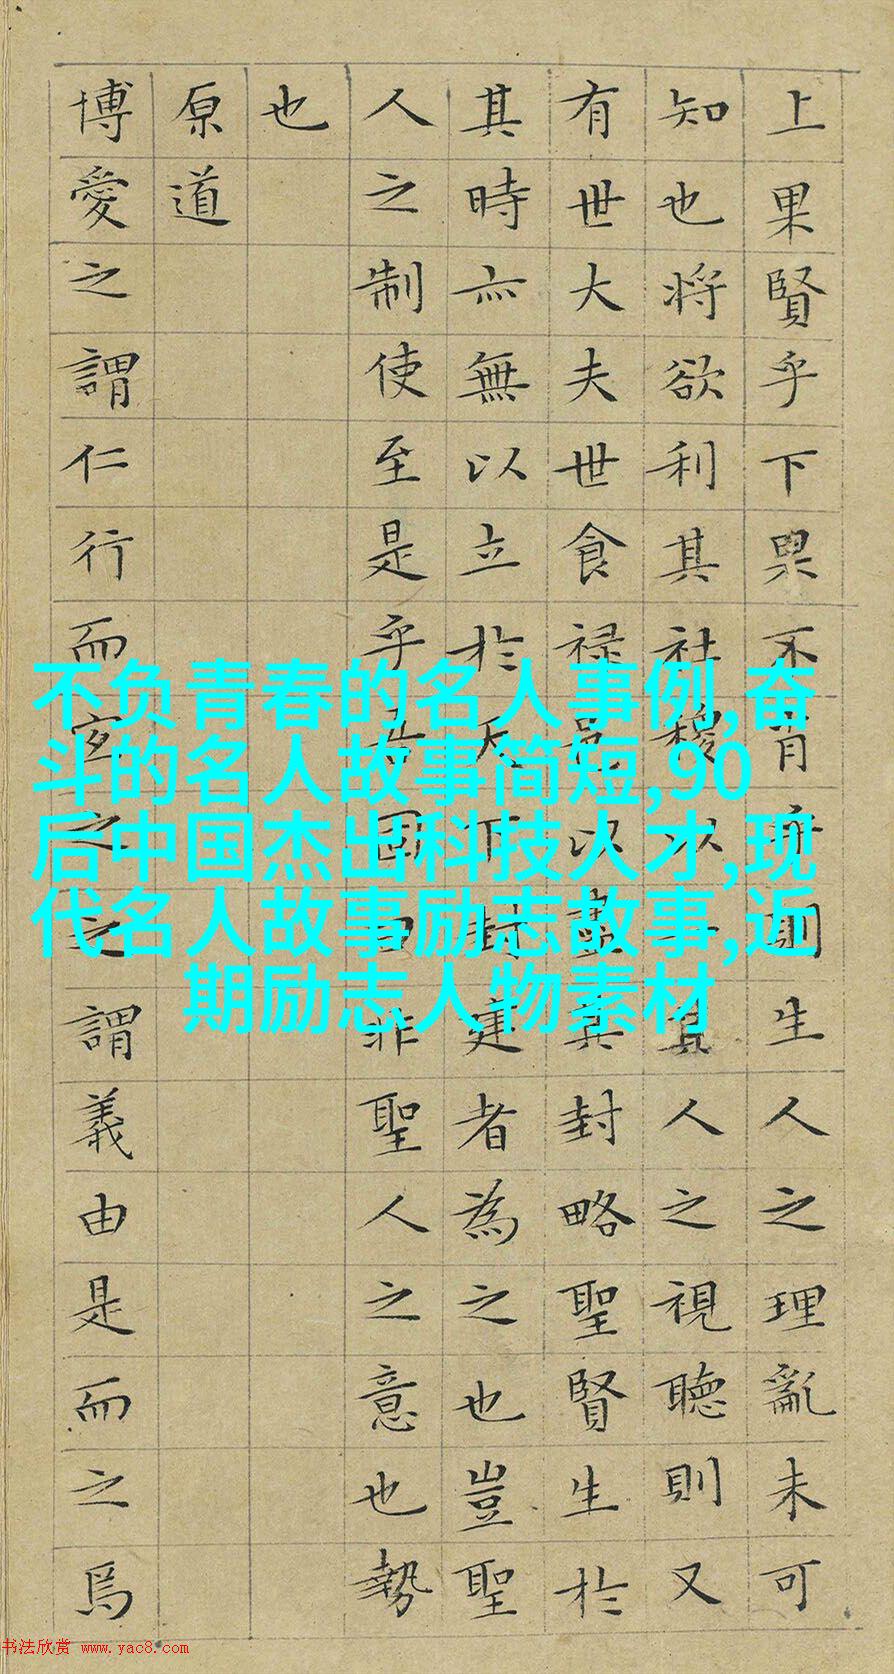 上果賢乎下果不肖乎則生人之理亂未可
知也將欲利其社稷以一其人之視聽則又
有世大夫世食禄邑以盡其封略聖賢生於
其時亦無以立於天下封建者為之也豈聖
人之制使至是乎吾固曰非聖人之意也勢
也
原道
博愛之謂仁行而宜之之謂義由是而之焉
不负青春的名人事例,奋
斗的名人故事简短,90
后中国杰出科技人才,现
代名人故事励志故事,近
期励志人物素材
书法欣赏 www.yac8.com